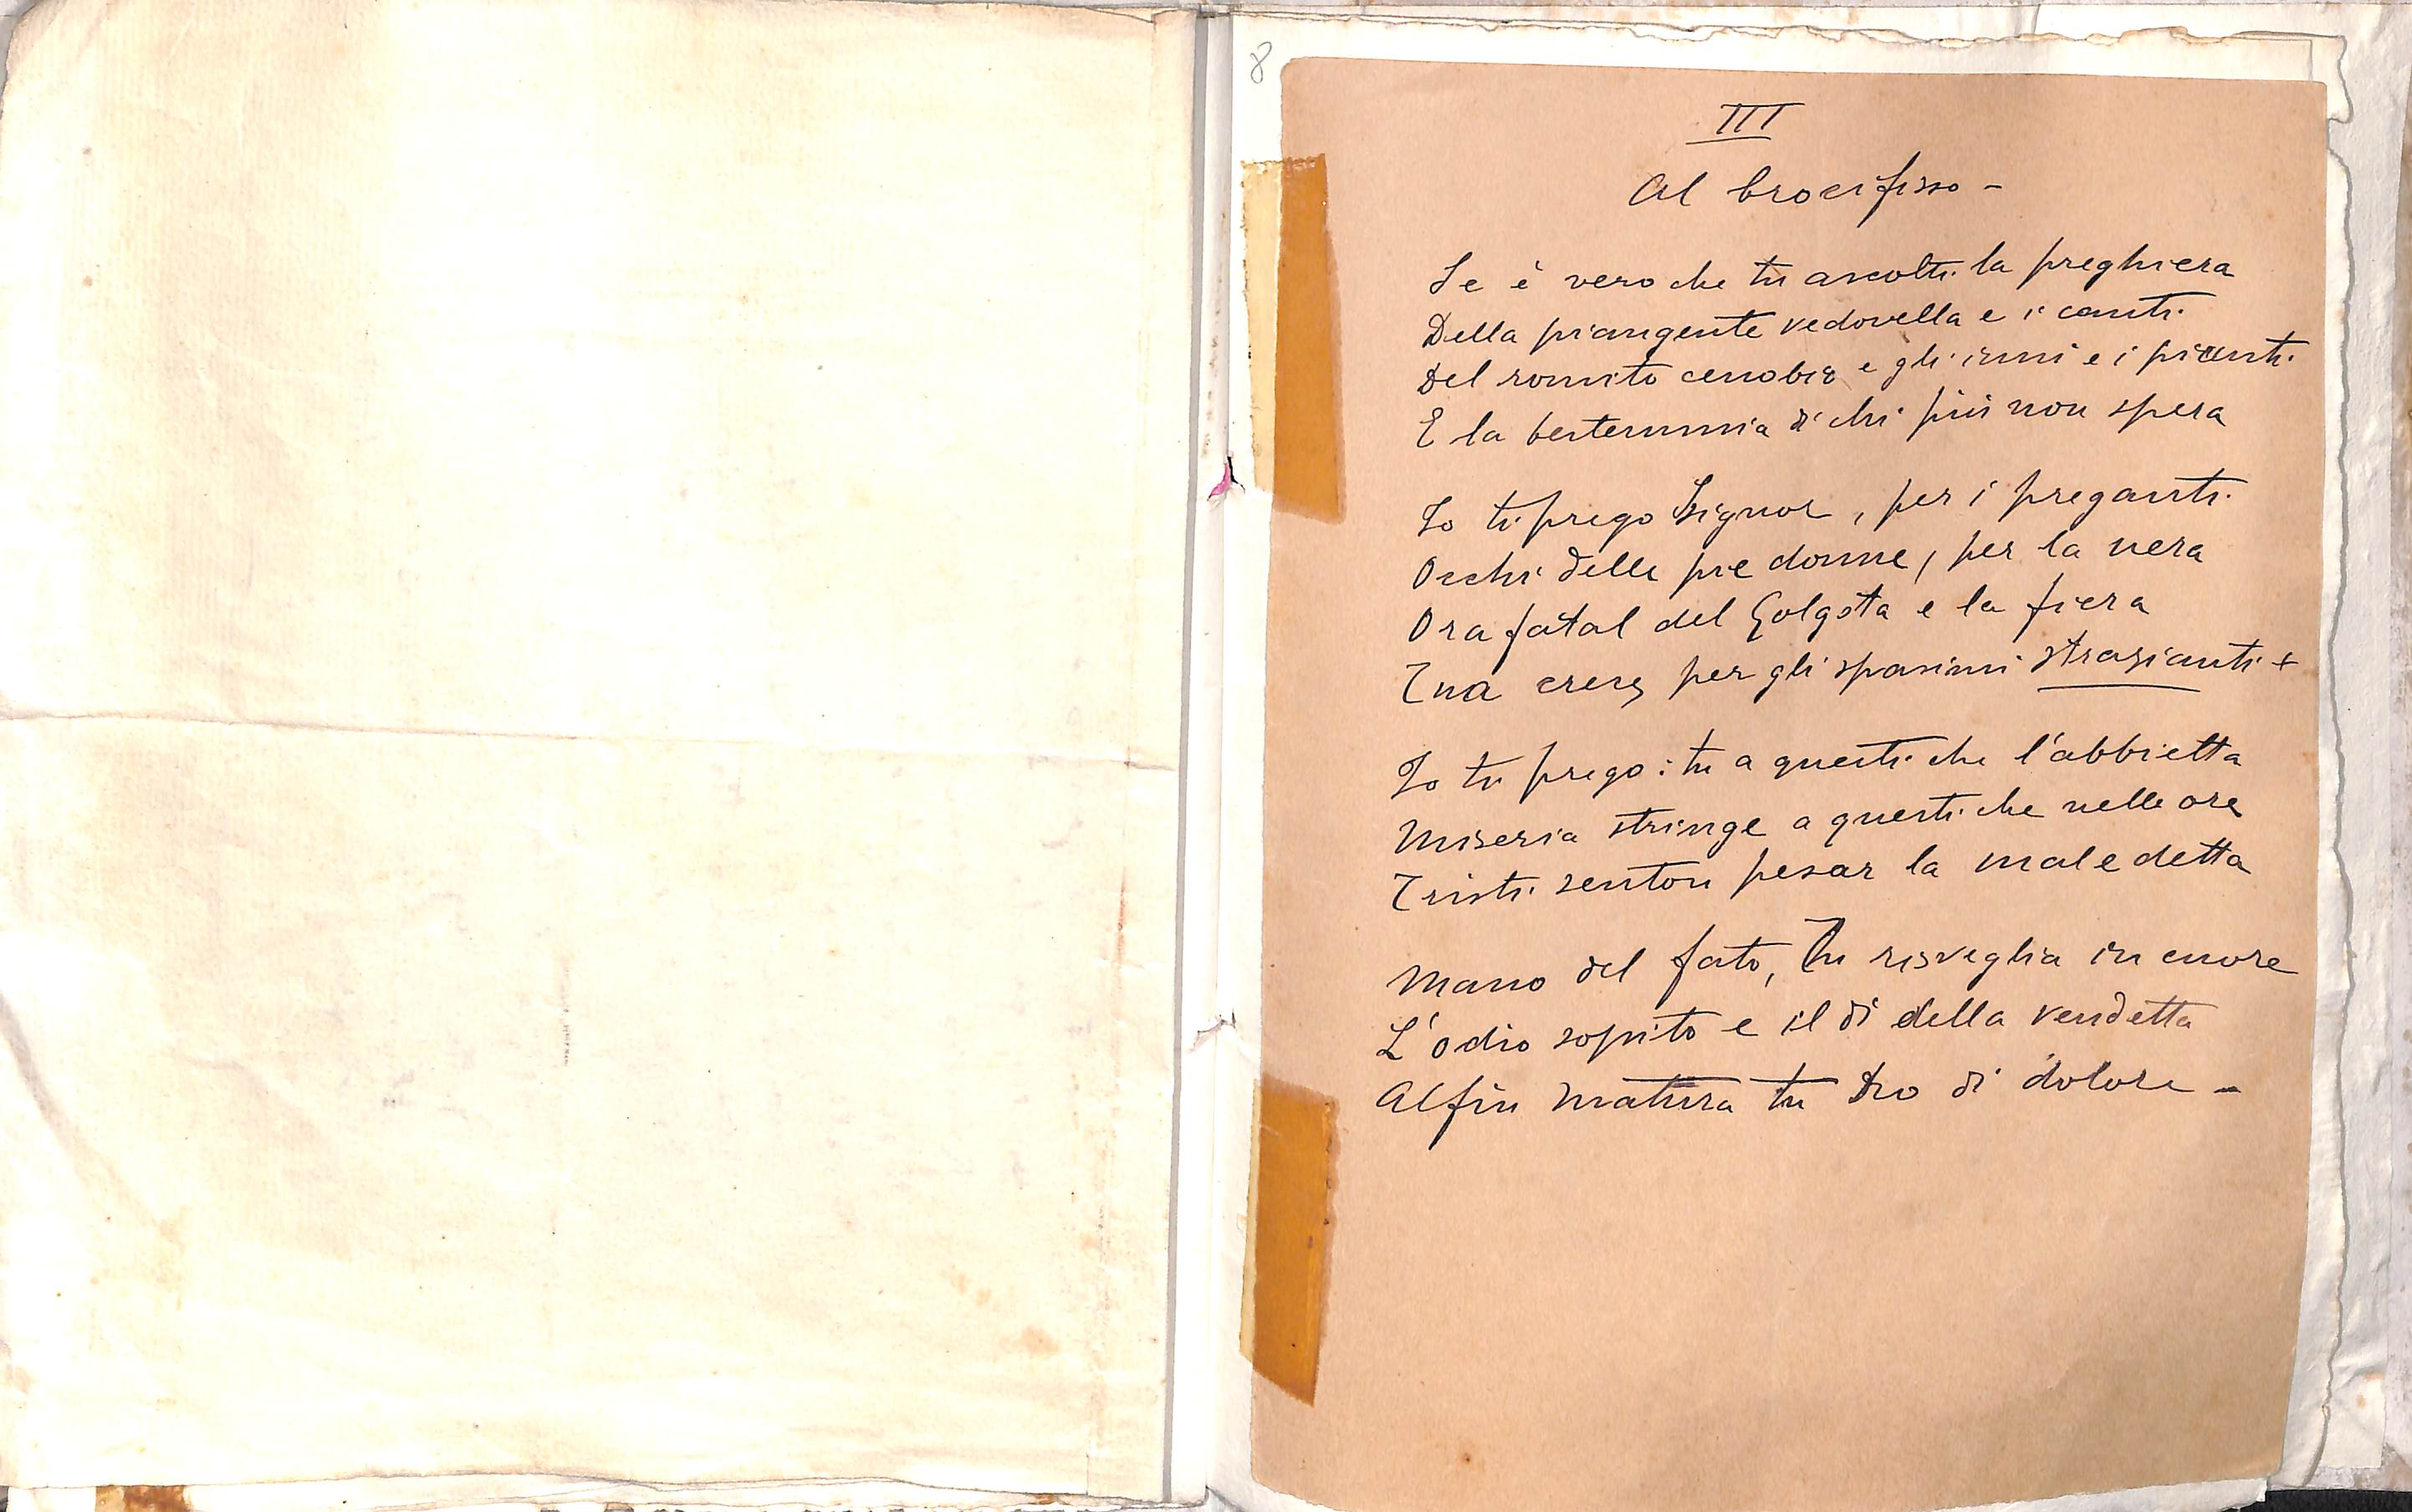 8
III
Al Crocifisso -
Se è vero che tu ascolti la preghiera
Della piangente vedovella e i canti
Del romito cenobio e gli inni e i pianti
E la bestemmia di chi più non spera
Io ti prego Signor, per i preganti
Occhi delle pie donne, per la nera
Ora fatal del Golgota e la fiera
Tua croce, per gli spasimi strazianti +
Io ti prego: tu a questi che l'abbietta
Miseria stringe a questi che nelle ore
Tristi senton pesar la maledetta
Mano del fato, Tu risveglia in cuore
L'odio sopito e il dì della vendetta
Alfin matura tu Dio di dolore -